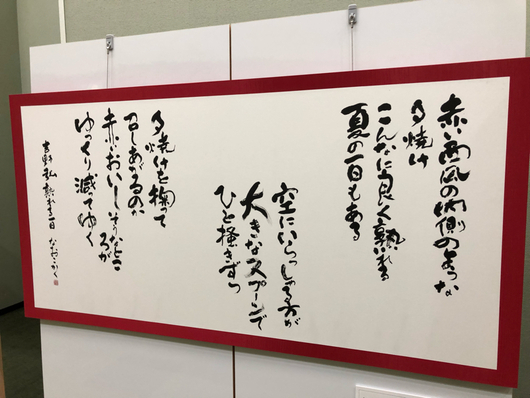 赤い西瓜の内側のような
夕焼け
こんなに良く熟れる
夏の一日もある
空にいらっしゃる方が
大きなスプーンで
ひと掻きずつ
夕焼けを掬って
召しあがるのか
赤いおいしそうなところが
ゆっくり減ってゆく
吉野弘 熟れる一日